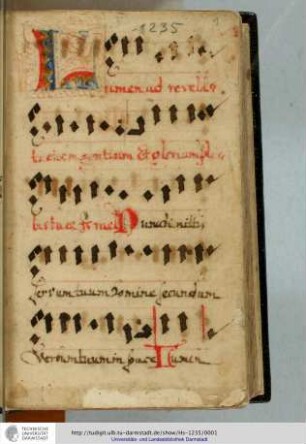 1235
Lumen ad revela
tionem gentium Et gloriam ple
bis tuae Nunc dimittis
servum tuum Domine secundum
Verbum tuum in pace Lumen
TECHNISCHE
UNIVERSITÄT
DARMSTADT
http://tudigit.ulb.tu-darmstadt.de/show/Hs-1235/0001
Universitäts- und Landesbibliothek Darmstadt